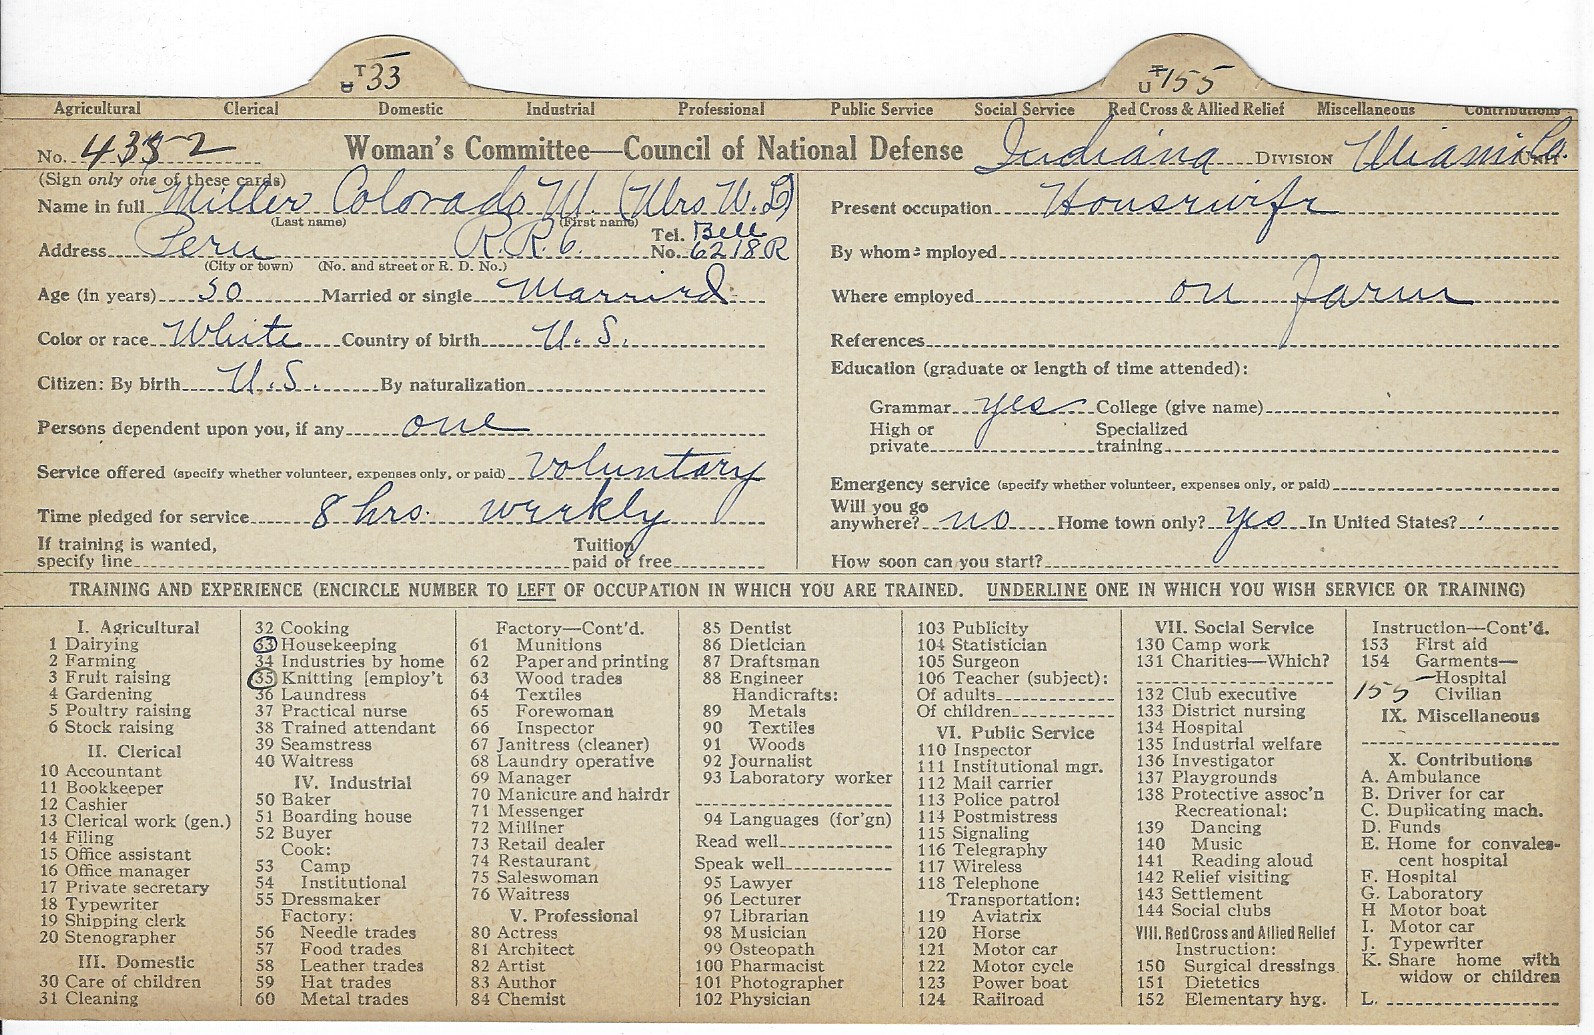 T
U 33
T
U 155
Agricultural Clerical Domestic Industrial Professional Public Service Social Service Red Cross & Allied Relief Miscellaneous Contributions
No. 4352 Woman's Committee—Council of National Defense Indiana DIVISION Miami Co. UNIT
(Sign only one of these cards)
Name in full Miller Colorado M. (Mrs W. L)
(Last name) (First name)
Address Peru R.R. 6. Tel. No. Bell 6218R
(City or town) (No. and street or R. D. No.)
Age (in years) 50 Married or single Married
Color or race White Country of birth U. S.
Citizen: By birth U. S. By naturalization
Persons dependent upon you, if any one
Service offered (specify whether volunteer, expenses only, or paid) Voluntary
Time pledged for service 8 hrs. weekly
If training is wanted, specify line Tuition paid or free
Present occupation Housewife
By whom employed
Where employed on farm
References
Education (graduate or length of time attended):
Grammar yes College (give name)
High or private Specialized training
Emergency service (specify whether volunteer, expenses only, or paid)
Will you go anywhere? no Home town only? yes In United States?
How soon can you start?
TRAINING AND EXPERIENCE (ENCIRCLE NUMBER TO LEFT OF OCCUPATION IN WHICH YOU ARE TRAINED. UNDERLINE ONE IN WHICH YOU WISH SERVICE OR TRAINING)
I. Agricultural
1 Dairying
2 Farming
3 Fruit raising
4 Gardening
5 Poultry raising
6 Stock raising
II. Clerical
10 Accountant
11 Bookkeeper
12 Cashier
13 Clerical work (gen.)
14 Filing
15 Office assistant
16 Office manager
17 Private secretary
18 Typewriter
19 Shipping clerk
20 Stenographer
III. Domestic
30 Care of children
31 Cleaning
32 Cooking
33 Housekeeping
34 Industries by home
35 Knitting [employ't
36 Laundress
37 Practical nurse
38 Trained attendant
39 Seamstress
40 Waitress
IV. Industrial
50 Baker
51 Boarding house
52 Buyer
Cook:
53 Camp
54 Institutional
55 Dressmaker
Factory:
56 Needle trades
57 Food trades
58 Leather trades
59 Hat trades
60 Metal trades
Factory—Cont'd.
61 Munitions
62 Paper and printing
63 Wood trades
64 Textiles
65 Forewoman
66 Inspector
67 Janitress (cleaner)
68 Laundry operative
69 Manager
70 Manicure and hairdr
71 Messenger
72 Milliner
73 Retail dealer
74 Restaurant
75 Saleswoman
76 Waitress
V. Professional
80 Actress
81 Architect
82 Artist
83 Author
84 Chemist
85 Dentist
86 Dietician
87 Draftsman
88 Engineer
Handicrafts:
89 Metals
90 Textiles
91 Woods
92 Journalist
93 Laboratory worker
94 Languages (for'gn)
Read well
Speak well
95 Lawyer
96 Lecturer
97 Librarian
98 Musician
99 Osteopath
100 Pharmacist
101 Photographer
102 Physician
103 Publicity
104 Statistician
105 Surgeon
106 Teacher (subject):
Of adults
Of children
VI. Public Service
110 Inspector
111 Institutional mgr.
112 Mail carrier
113 Police patrol
114 Postmistress
115 Signaling
116 Telegraphy
117 Wireless
118 Telephone
Transportation:
119 Aviatrix
120 Horse
121 Motor car
122 Motor cycle
123 Power boat
124 Railroad
VII. Social Service
130 Camp work
131 Charities—Which?
132 Club executive
133 District nursing
134 Hospital
135 Industrial welfare
136 Investigator
137 Playgrounds
138 Protective assoc'n
Recreational:
139 Dancing
140 Music
141 Reading aloud
142 Relief visiting
143 Settlement
144 Social clubs
VIII. Red Cross and Allied Relief
Instruction:
150 Surgical dressings
151 Dietetics
152 Elementary hyg.
Instruction—Cont'd.
153 First aid
154 Garments—
Hospital
155 Civilian
IX. Miscellaneous
X. Contributions
A. Ambulance
B. Driver for car
C. Duplicating mach.
D. Funds
E. Home for convales-
cent hospital
F. Hospital
G. Laboratory
H Motor boat
I. Motor car
J. Typewriter
K. Share home with
widow or children
L.